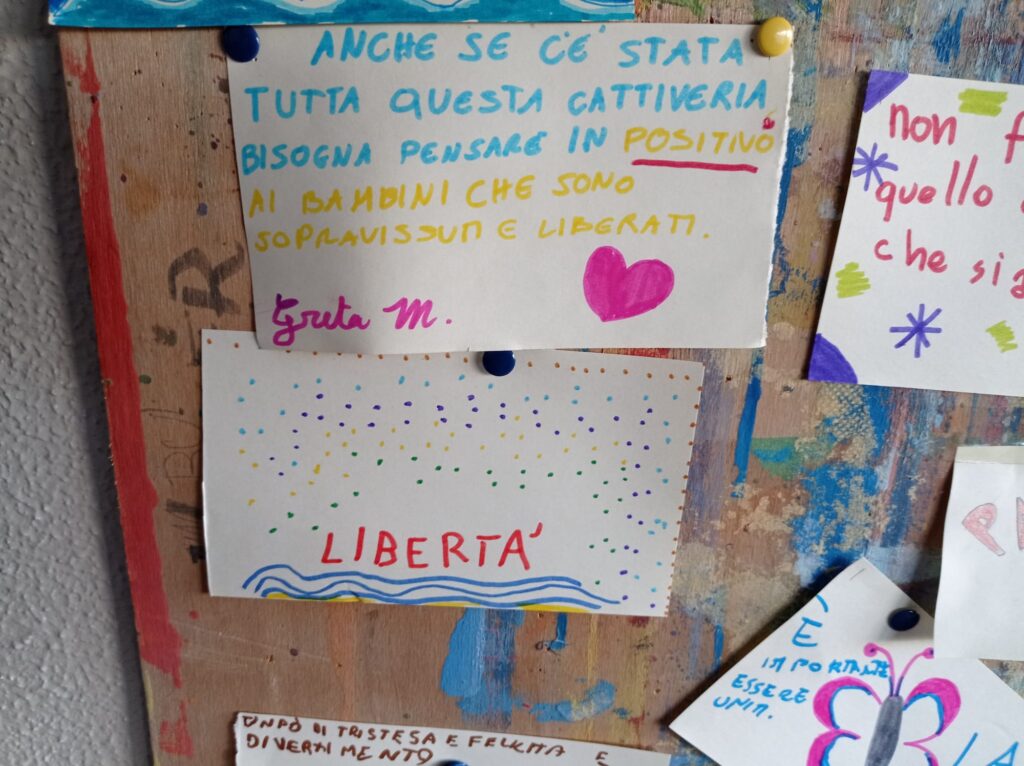 ANCHE SE C'E' STATA
TUTTA QUESTA CATTIVERIA
BISOGNA PENSARE IN POSITIVO
AI BAMBINI CHE SONO
SOPRAVISSUTI E LIBERATI.
Greta M.
LIBERTA'
non f
quello
che sia
È
IMPORTANTE
ESSERE
UNITI.
LA
UNPÒ DI TRISTESA E FELICITA E
DIVERTIMENTO